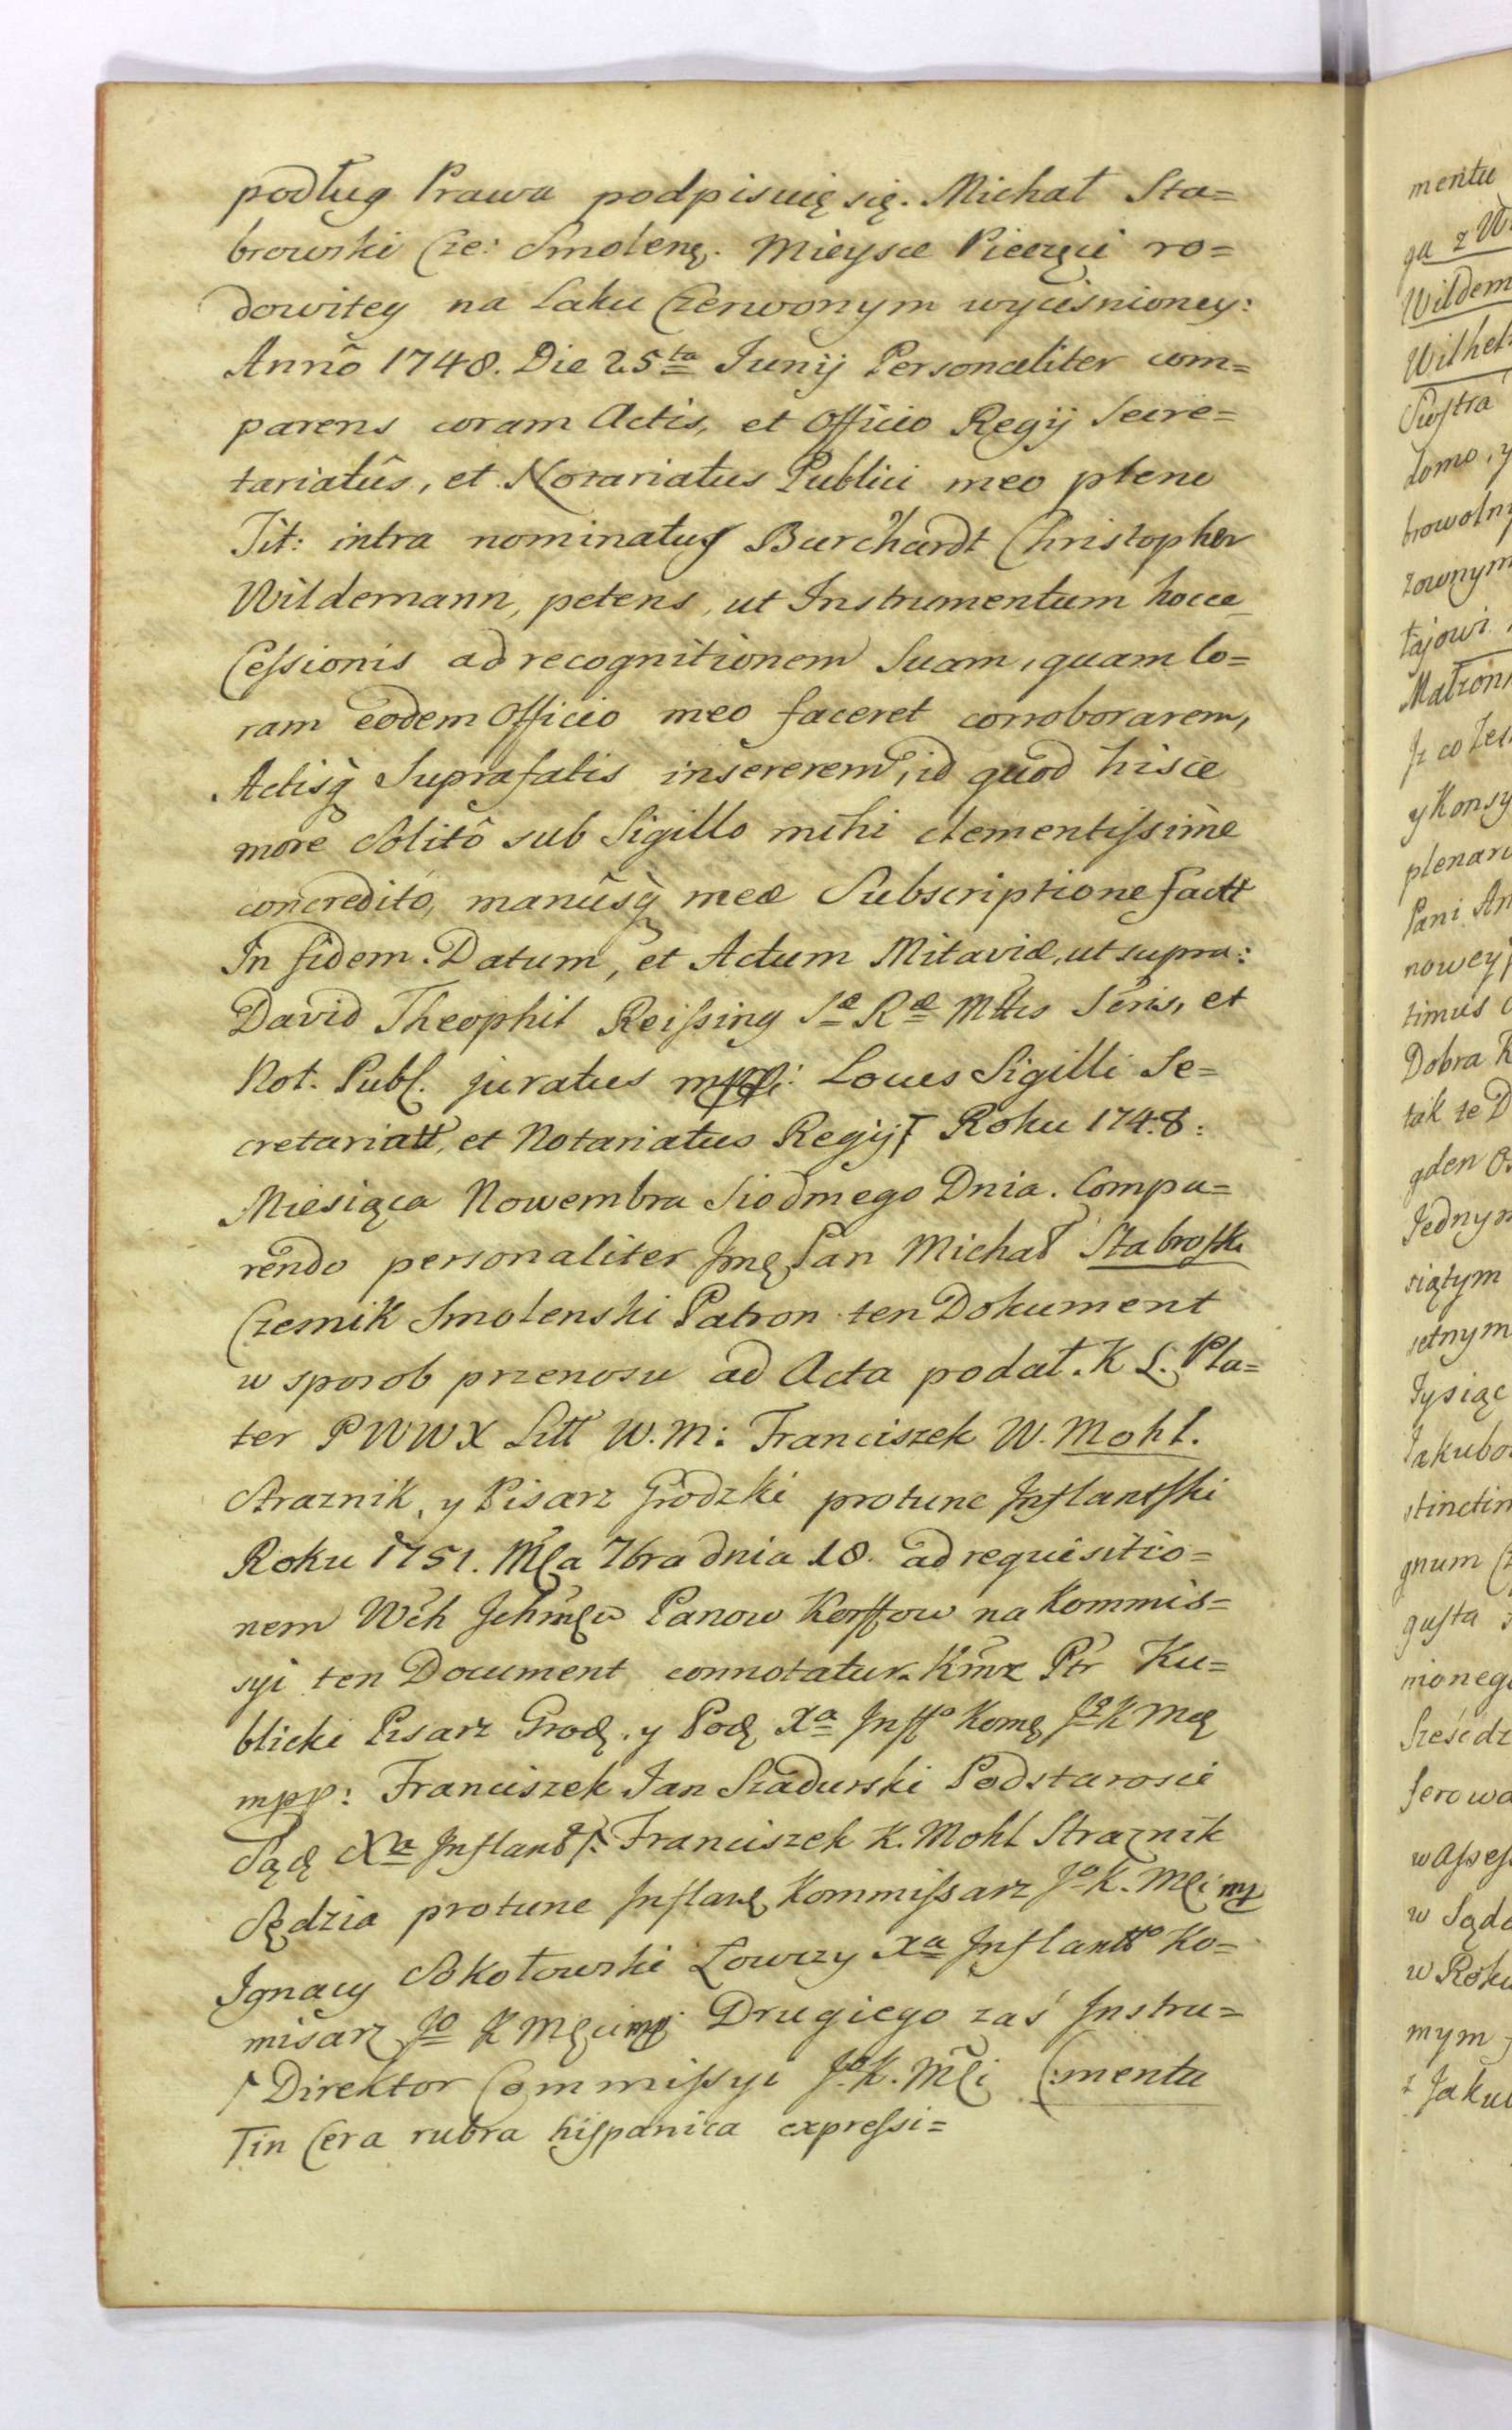 podług Prawa podpisuię się. Michał Sta=
browski Cze: Smoleng. Mieysce Pieczęci ro=
dowitey na Laku Czerwonym wyciśnioney:
Annô 1748. Die 25ta Junij Personaliter com=
parens coram Actis, et Officio Regij Secre=
tariatûs, et Notariatus Publici meo plene
Tit: intra nominatus Burchardt Christopher
Wildemann, petens, ut Instrumentum hocce
Cessionis ad recognitionem Suam, quam Co=
ram eodem Officio meo faceret corroborarem,
Actisq Suprafatis insererem, id quod hisce
more Solitô sub Sigillo mihi clementissimè
concredito, manûsq meæ Subscriptione factt
In fidem. Datum, et Actum Mitaviæ, ut supra:
David Theophil Reissing Sæ Ræ Mttis Seris, et
Not. Publ. juratus mppi: Locus Sigilli Se=
cretariatt, et Notariatus Regij Roku 1748:
Miesiąca Nowembra Siodmego Dnia. Compa=
rendo personaliter Jmę Pan Michał Stabrosski
Czesnik Smolenski Patron ten Dokument
w sposob przenosu ad Acta podał. K L. Pla=
ter P W W X Litt W. M: Franciszek W. Mohl.
Straznik, y Pisarz Grodzki protunc Inflantski
Roku 1751. Mca 7bra dnia 18. ad requisitio=
nem Wch Jchmcw Panow Korffow na Kommis=
syi ten Document connotatur. Kmz Ptr Ku=
blicki Pisarz Grodz. y Podz Xa Inffo Komę Jo K Mcę
mpp: Franciszek Jan Szadurski Podstarosci
Sądz Xa Inflant: Franciszek K. Mohl Straznik
Sędzia protunc Inflang Kommissarz Jo K. Mci mp
Ignacy Sokołowski Łowczy Xa Inflantto Ko=
misarz Jo K Męci mp Drugiego zaś Instru=
/ Direktor Commissyi Jo K. Mci (:mentu
in Cera rubra hispanica expressi=
mentu
ga z
Wildem
Wilhel
domo, y
browoln
zownym
tajowi
Małzon
y Konsy
plenar
Pani An
nowey
timus
Dobra
tak ze D
gden
Jednym
siątym
setnym
Tysiąc
Jakubo
stinctin
gnum
gusta
nionego
Szescdz
ferowa
w Assess
w Sąd
w Roku
mym
z Jaku